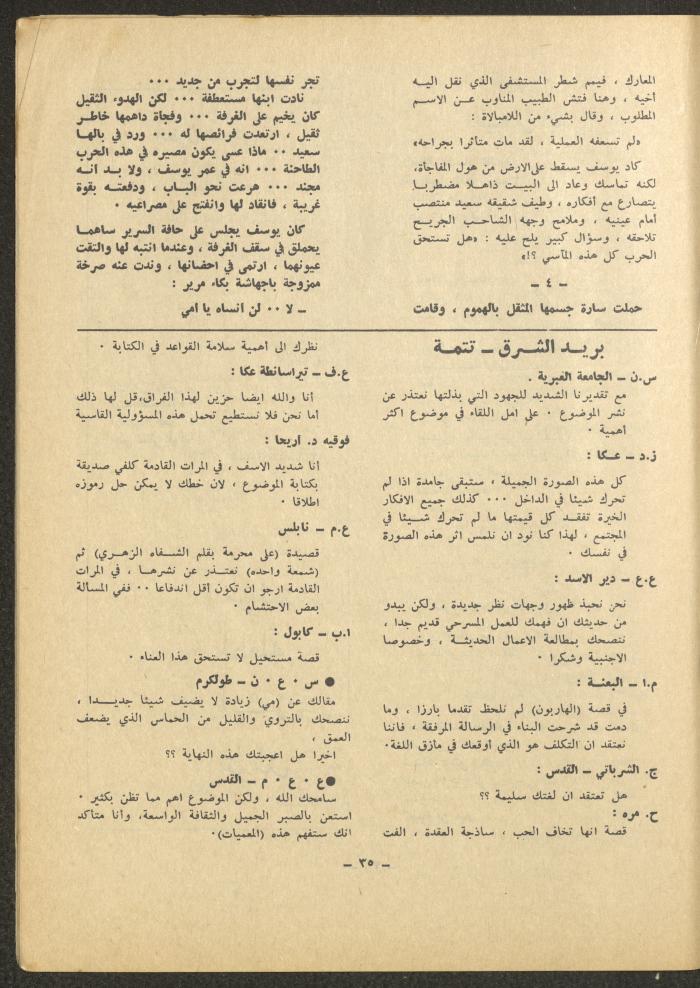 المعارك ، فيمم شطر المستشفى الذي نقل اليه
أخيه ، وهنا فتش الطبيب المناوب عن الاسم
المطلوب ، وقال بشيء من اللامبالاة :
«لم تسعفه العملية ، لقد مات متأثرا بجراحه»
كاد يوسف يسقط على الارض من هول المفاجأة،
لكنه تماسك وعاد الى البيت ذاهلا مضطربا
يتصارع مع أفكاره ، وطيف شقيقه سعيد منتصب
أمام عينيه ، وملامح وجهه الشاحب الجريح
تلاحقه ، وسؤال كبير يلح عليه : «هل تستحق
الحرب كل هذه المآسي ؟!»
ــ ٤ ــ
حملت سارة جسمها المثقل بالهموم ، وقامت
تجر نفسها لتجرب من جديد ٠٠٠
نادت ابنها مستعطفة ٠٠٠ لكن الهدوء الثقيل
كان يخيم على الغرفة ٠٠٠ وفجأة داهمها خاطر
ثقيل ، ارتعدت فرائصها له ٠٠٠ ورد في بالها
سعيد ٠٠ ماذا عسى يكون مصيره في هذه الحرب
الطاحنة ٠٠٠ انه في عمر يوسف ، ولا بد أنه
مجند ٠٠٠ هرعت نحو الباب ، ودفعته بقوة
غريبة ، فانقاد لها وانفتح على مصراعيه ٠
كان يوسف يجلس على حافة السرير ساهما
يحملق في سقف الغرفة ، وعندما انتبه لها والتقت
عيونهما ، ارتمى في احضانها ، وندت عنه صرخة
ممزوجة باجهاشة بكاء مرير :
ــ لا ٠٠ لن أنساه يا أمي
بريد الشرق ــ تتمة
س.ن ــ الجامعة العبرية .
مع تقديرنا الشديد للجهود التي بذلتها نعتذر عن
نشر الموضوع ٠ على امل اللقاء في موضوع اكثر
أهمية ٠
ز.د ــ عكا :
كل هذه الصورة الجميلة ، ستبقى جامدة اذا لم
تحرك شيئا في الداخل ٠٠٠ كذلك جميع الافكار
الخيرة تفقد كل قيمتها ما لم تحرك شيئا في
المجتمع ، لهذا كنا نود ان نلمس اثر هذه الصورة
في نفسك ٠
ع.ع ــ دير الاسد :
نحن نحبذ ظهور وجهات نظر جديدة ، ولكن يبدو
من حديثك ان فهمك للعمل المسرحي قديم جدا ،
ننصحك بمطالعة الاعمال الحديثة ، وخصوصا
الاجنبية وشكرا ٠
م.ا ــ البعنة :
في قصة (الهاربون) لم نلحظ تقدما بارزا ، وما
دمت قد شرحت البناء في الرسالة المرفقة ، فاننا
نعتقد ان التكلف هو الذي اوقعك في مازق اللغة٠
ج. الشرباتي ــ القدس :
هل تعتقد ان لغتك سليمة ؟؟
ح. مره :
قصة انها تخاف الحب ، ساذجة العقدة ، الفت
نظرك الى أهمية سلامة القواعد في الكتابة ٠
ع.ف ــ تيراسانطة عكا :
أنا والله ايضا حزين لهذا الفراق،قل لها ذلك
أما نحن فلا نستطيع تحمل هذه المسؤولية القاسية
فوقيه د. أريحا :
أنا شديد الاسف ، في المرات القادمة كلفي صديقة
بكتابة الموضوع ، لان خطك لا يمكن حل رموزه
اطلاقا ٠
ع.م ــ نابلس
قصيدة (على محرمة بقلم الشفاه الزهري) ثم
(شمعة واحده) نعتذر عن نشرها ، في المرات
القادمة ارجو ان تكون أقل اندفاعا ٠٠ ففي المسألة
بعض الاحتشام ٠
ا.ب ــ كابول :
قصة مستحيل لا تستحق هذا العناء ٠
● س ٠ ع ٠ ن ــ طولكرم
مقالك عن (مي) زيادة لا يضيف شيئا جديدا ،
ننصحك بالتروي والقليل من الحماس الذي يضعف
العمق ،
اخيرا هل اعجبتك هذه النهاية ؟؟
● ع ٠ ع ٠ م ــ القدس
سامحك الله ، ولكن الموضوع اهم مما تظن بكثير ٠
استعن بالصبر الجميل والثقافة الواسعة، وأنا متأكد
انك ستفهم هذه (المعميات)٠
ــ ٣٥ ــ